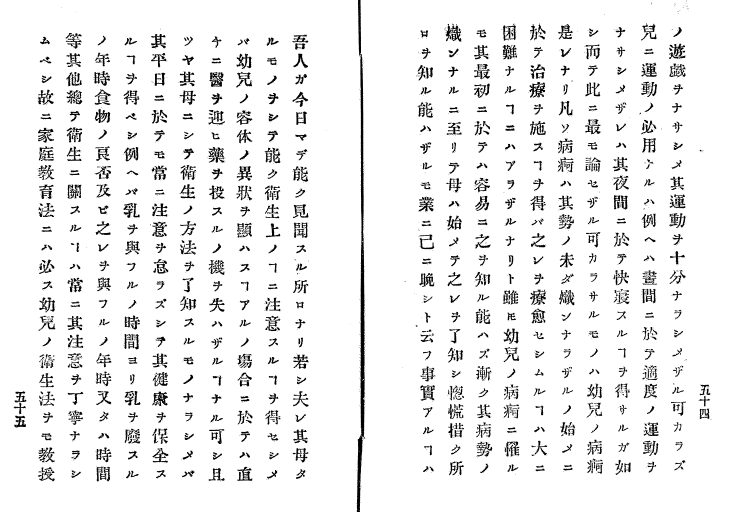 五十四
ノ遊戯ヲナサシメ其運動ヲ十分ナラシメザル可カラズ
兒ニ運動ノ必用ナルハ例ヘハ晝間ニ於テ適度ノ運動ヲ
ナサシメザレハ其夜間ニ於テ快寢スルヿヲ得サルガ如
シ而テ此ニ最モ論セザル可カラサルモノハ幼兒ノ病痾
是レナリ凡ソ病痾ハ其勢ノ未ダ熾ンナラザルノ始メニ
於テ治療ヲ施スヿヲ得バ之レヲ療愈セシムルヿハ大ニ
困難ナルヿニハアラザルナリト雖モ幼兒ノ病痾ニ罹ル
モ其最初ニ於テハ容易ニ之ヲ知ル能ハズ漸ク其病勢ノ
熾ンナルニ至リテ母ハ始メテ之レヲ了知シ惚慌措ク所
ロヲ知ル能ハザルモ業ニ已ニ晩シト云フ事實アルヿハ
吾人ガ今日マデ能ク見聞スル所ロナリ若シ夫レ其母タ
ルモノヲシテ能ク衛生上ノヿニ注意スルヿヲ得セシメ
バ幼兒ノ容休ノ異狀ヲ顯ハスヿアルノ塲合ニ於テハ直
チニ醫ヲ迎ヒ藥ヲ投スルノ機ヲ失ハザルヿナル可シ且
ツヤ其母ニシテ衛生ノ方法ヲ了知スルモノナラシメバ
其平日ニ於テモ常ニ注意ヲ怠ラズシテ其健康ヲ保全ス
ルヿヲ得ベシ例ヘバ乳ヲ與フルノ時間ヨリ乳ヲ廢スル
ノ年時食物ノ良否及ビ之レヲ與フルノ年時又タハ時間
等其他總テ衛生ニ關スルヿハ常ニ其注意ヲ丁寧ナラシ
ムベシ故ニ家庭教育法ニハ必ス幼兒ノ衛生法ヲモ教授
五十五